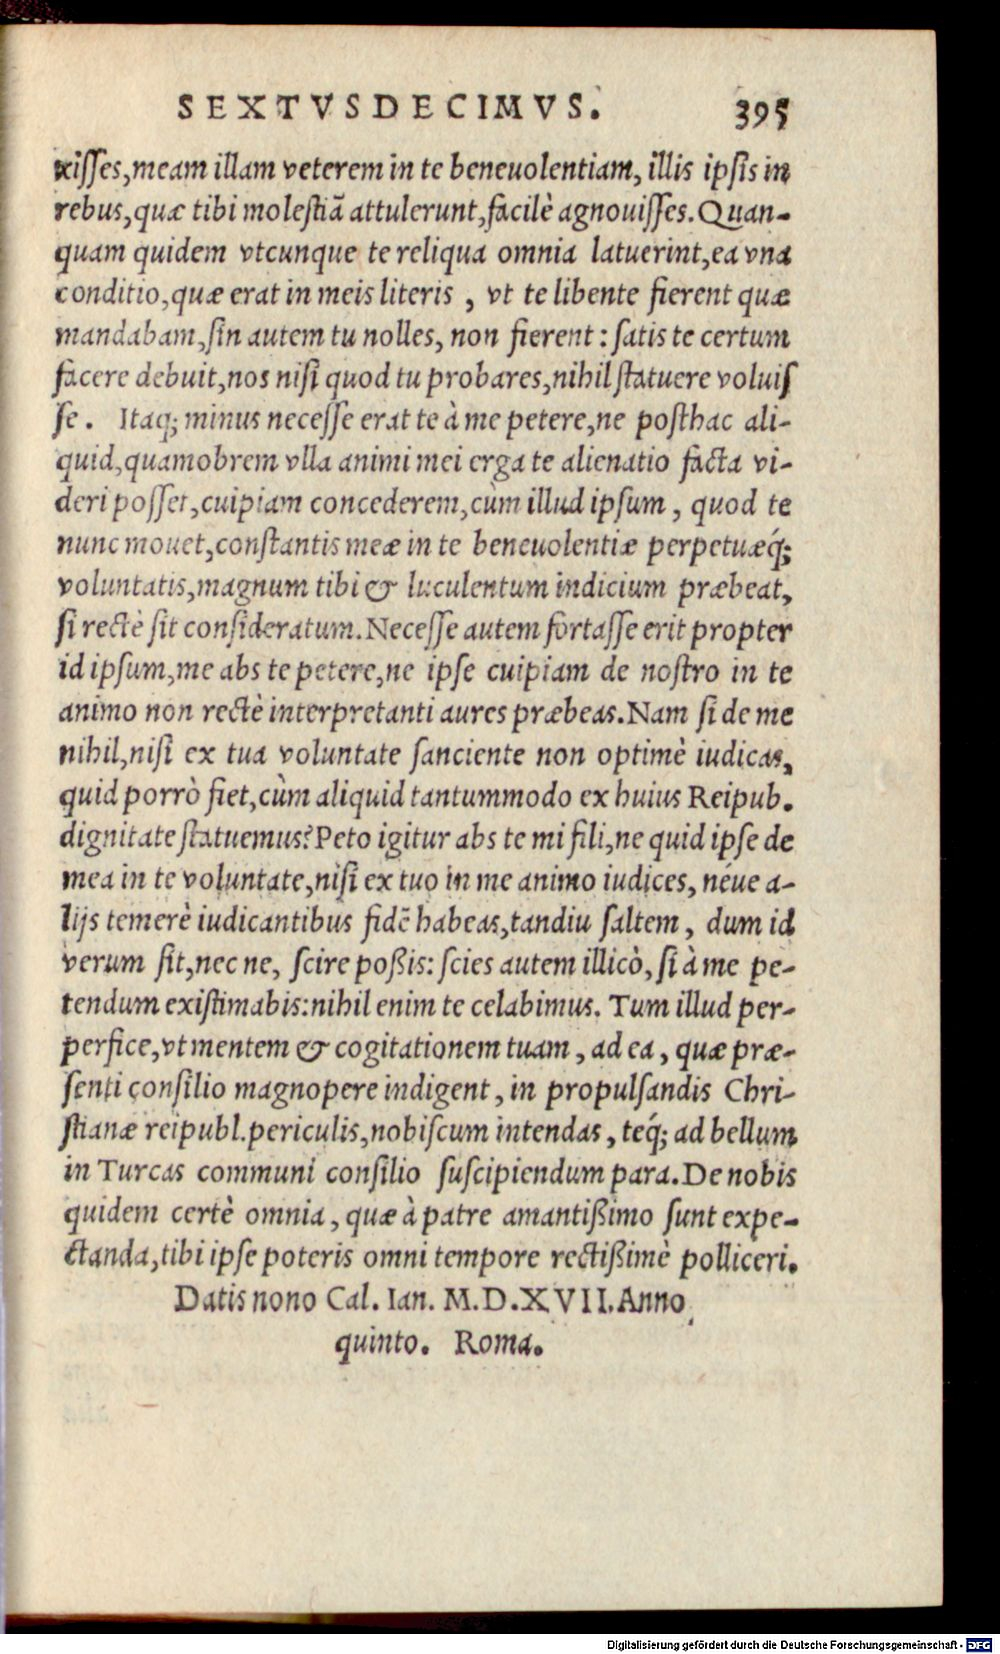 SEXTVSDECIMVS. 395
xiſſes, meam illam veterem in te beneuolentiam, illis ipſis in
rebus, quæ tibi moleſtiā attulerunt, facilè agnouiſſes. Quan-
quam quidem vtcunque te reliqua omnia latuerint, ea vna
conditio, quæ erat in meis literis, vt te libente fierent quæ
mandabam, ſin autem tu nolles, non fierent: ſatis te certum
facere debuit, nos niſi quod tu probares, nihil ſtatuere voluiſ
ſe. Itaq; minus neceſſe erat te à me petere, ne poſthac ali-
quid, quamobrem vlla animi mei erga te alienatio facta vi-
deri poſſet, cuipiam concederem, cùm illud ipſum, quod te
nunc mouet, conſtantis meæ in te beneuolentiæ perpetuæq́;
voluntatis, magnum tibi & luculentum indicium præbeat,
ſi rectè ſit conſideratum. Neceſſe autem fortaſſe erit propter
id ipſum, me abs te petere, ne ipſe cuipiam de noſtro in te
animo non rectè interpretanti aures præbeas. Nam ſi de me
nihil, niſi ex tua voluntate ſanciente non optimè iudicas,
quid porrò fiet, cùm aliquid tantummodo ex huius Reipub.
dignitate ſtatuemus? Peto igitur abs te mi fili, ne quid ipſe de
mea in te voluntate, niſi ex tuo in me animo iudices, néue a-
lijs temerè iudicantibus fidē habeas, tandiu ſaltem, dum id
verum ſit, nec ne, ſcire poßis: ſcies autem illicò, ſi à me pe-
tendum exiſtimabis: nihil enim te celabimus. Tum illud per-
perfice, vt mentem & cogitationem tuam, ad ea, quæ præ-
ſenti conſilio magnopere indigent, in propulſandis Chri-
ſtianæ reipubl. periculis, nobiſcum intendas, teq́; ad bellum
in Turcas communi conſilio ſuſcipiendum para. De nobis
quidem certè omnia, quæ à patre amantißimo ſunt expe-
ctanda, tibi ipſe poteris omni tempore rectißimè polliceri.
Datis nono Cal. Ian. M.D.XVII. Anno
quinto. Roma.
Digitalisierung gefördert durch die Deutsche Forschungsgemeinschaft - DFG